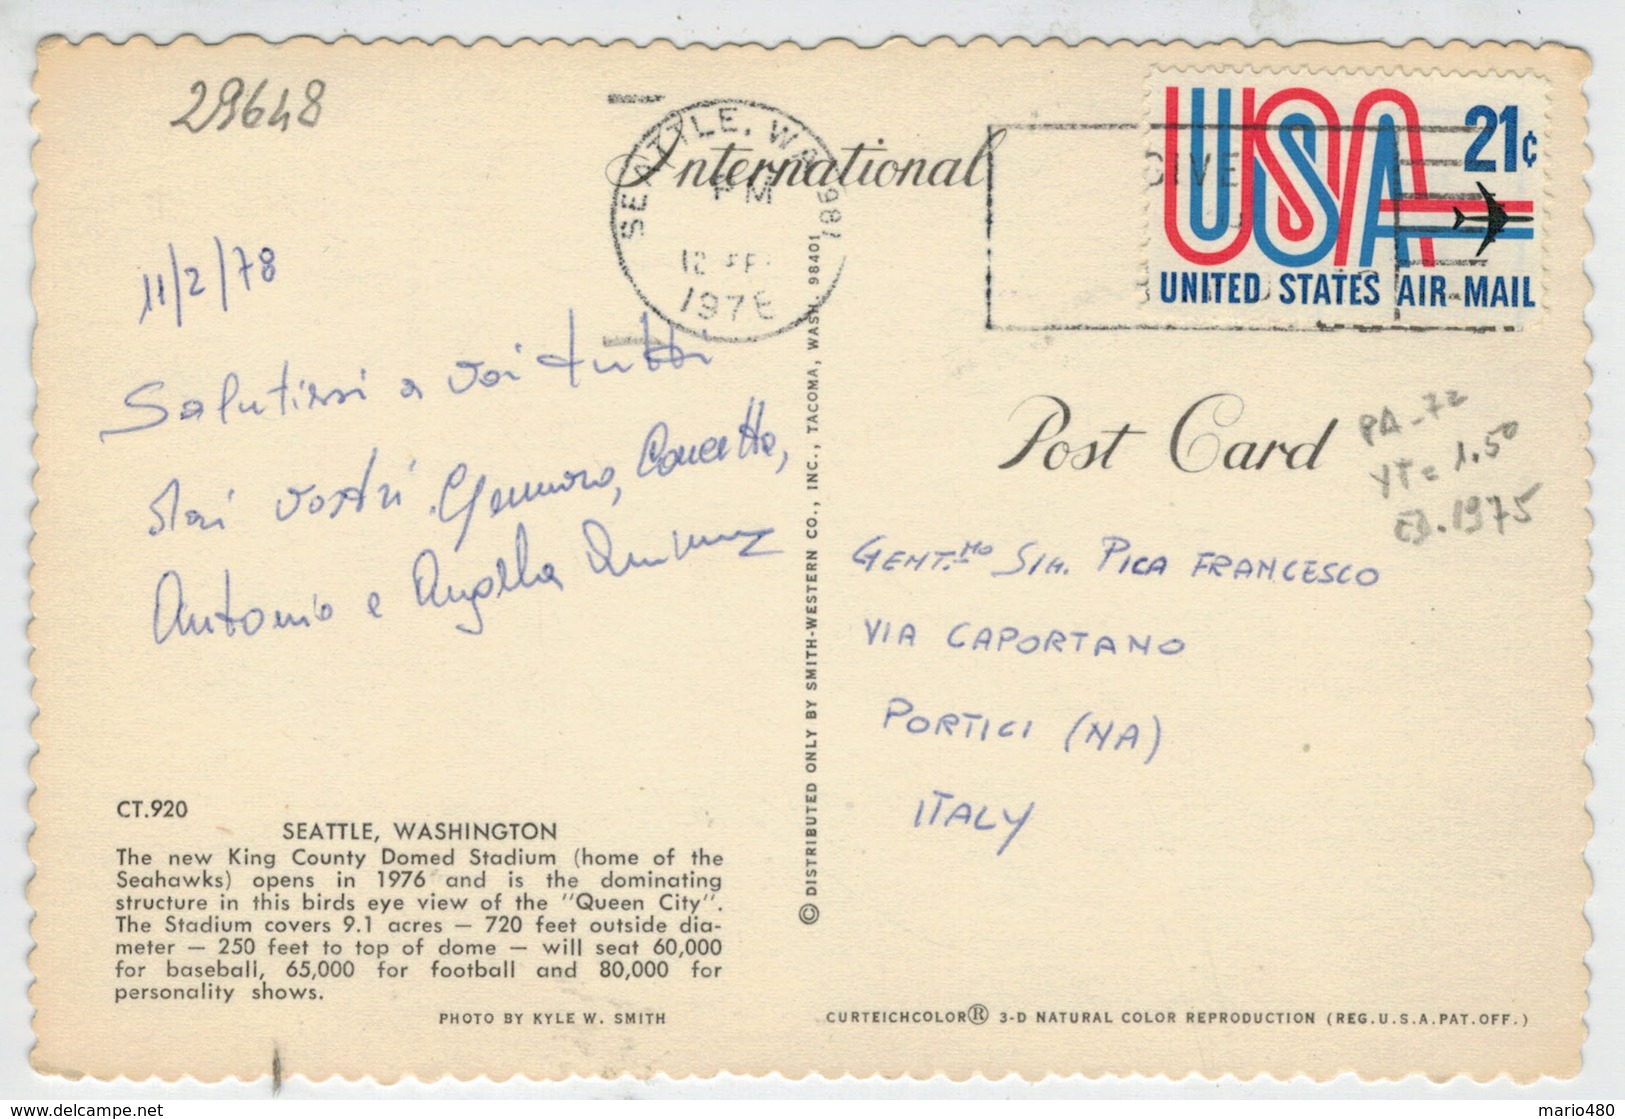 29648
International
SEATTLE, WA 981
PM
12 FE
1978
GIVE
USA 21¢
UNITED STATES AIR MAIL
11/2/78
Salutissi a voi tutti
dai vostri Gennaro, Concetta,
Antonio e Angella
Post Card
PA-72
YT = 1.50
ED. 1975
GENT.MO SIG. PICA FRANCESCO
VIA CAPORTANO
PORTICI (NA)
ITALY
© DISTRIBUTED ONLY BY SMITH-WESTERN CO., INC., TACOMA, WASH. 98401
CT.920
SEATTLE, WASHINGTON
The new King County Domed Stadium (home of the
Seahawks) opens in 1976 and is the dominating
structure in this birds eye view of the "Queen City".
The Stadium covers 9.1 acres — 720 feet outside dia-
meter — 250 feet to top of dome — will seat 60,000
for baseball, 65,000 for football and 80,000 for
personality shows.
PHOTO BY KYLE W. SMITH
CURTEICHCOLOR® 3-D NATURAL COLOR REPRODUCTION (REG.U.S.A.PAT.OFF.)
www.delcampe.net
mario480